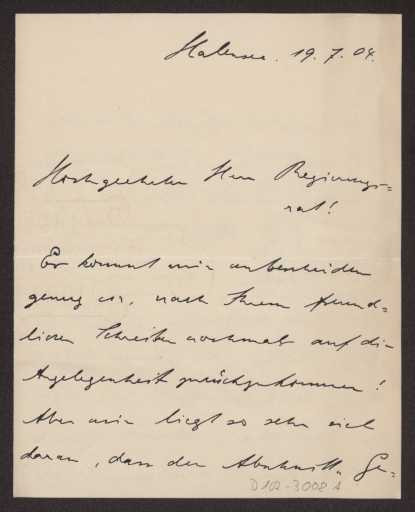 Halensee. 19. 7. 04.
Hochgeehrter Herr Regierungs=
rat!
Es kommt mir unbescheiden
genug vor, nach Ihrem freund=
lichen Schreiben nochmals auf die
Angelegenheit zurückzukommen!
Aber mir liegt so sehr viel
daran, dass der Abschnitt „Ge=
D 102-3008 A